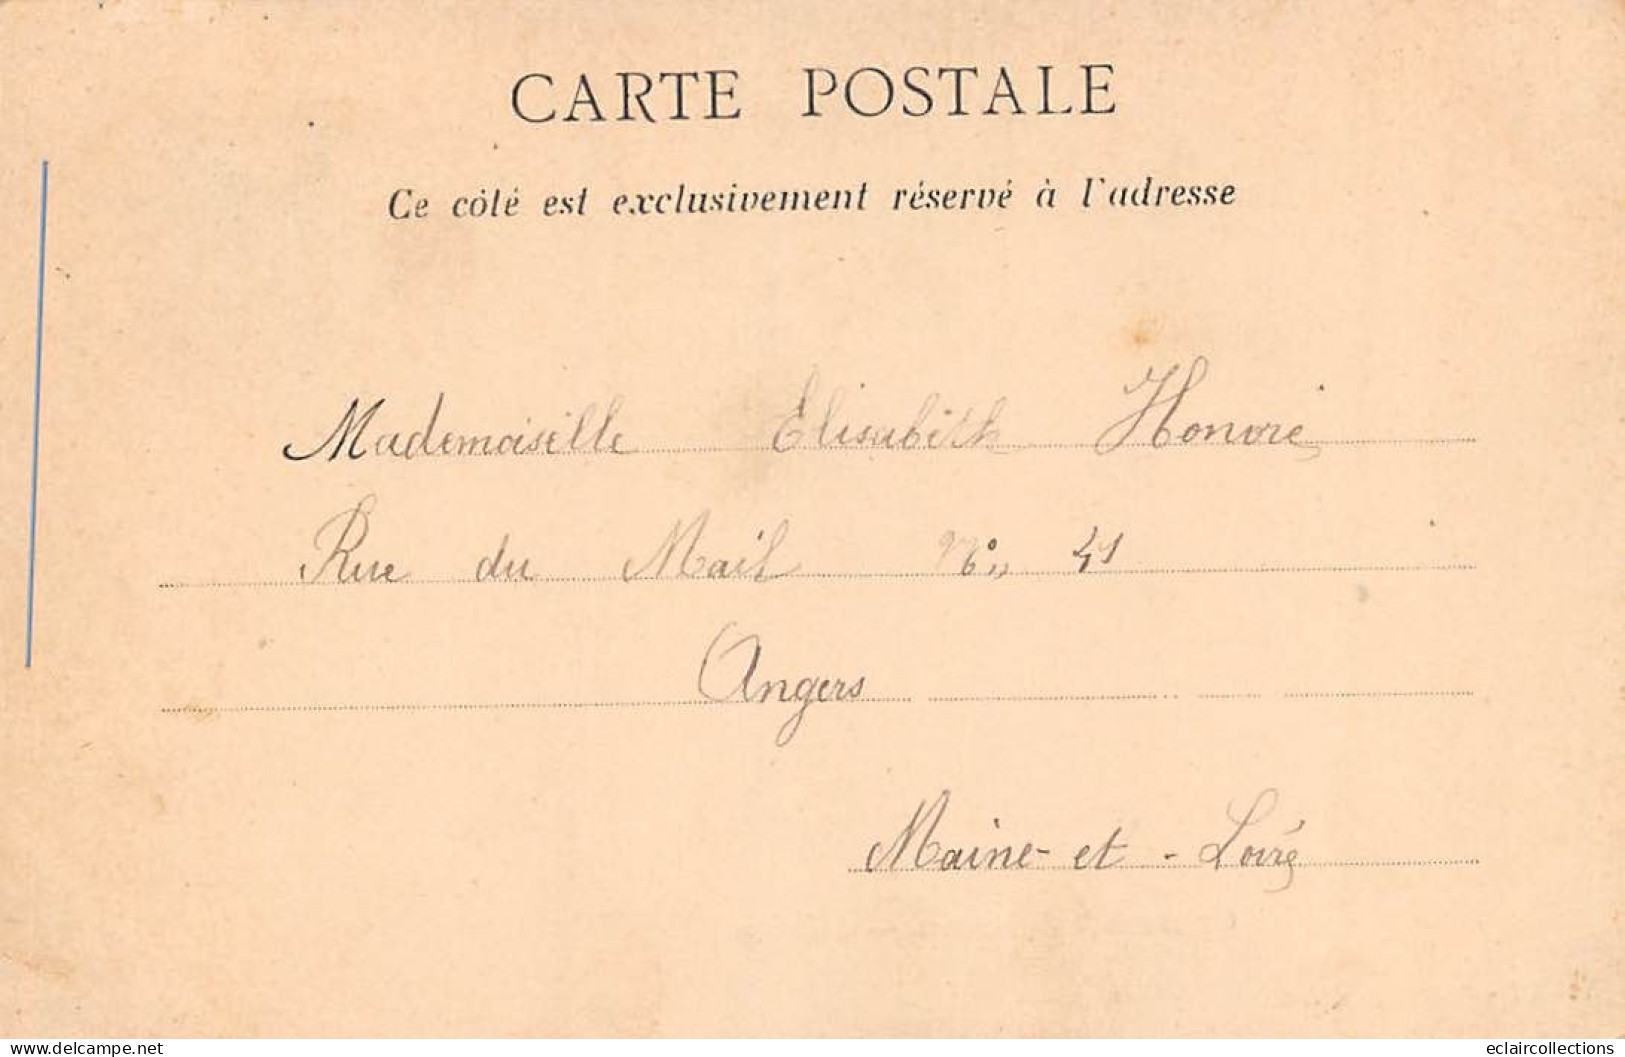 CARTE POSTALE
Ce côté est exclusivement réservé à l'adresse
Mademoiselle Elisabeth Honoré
Rue du Mail No 41
Angers
Maine-et-Loire
www.delcampe.net
eclaircollections